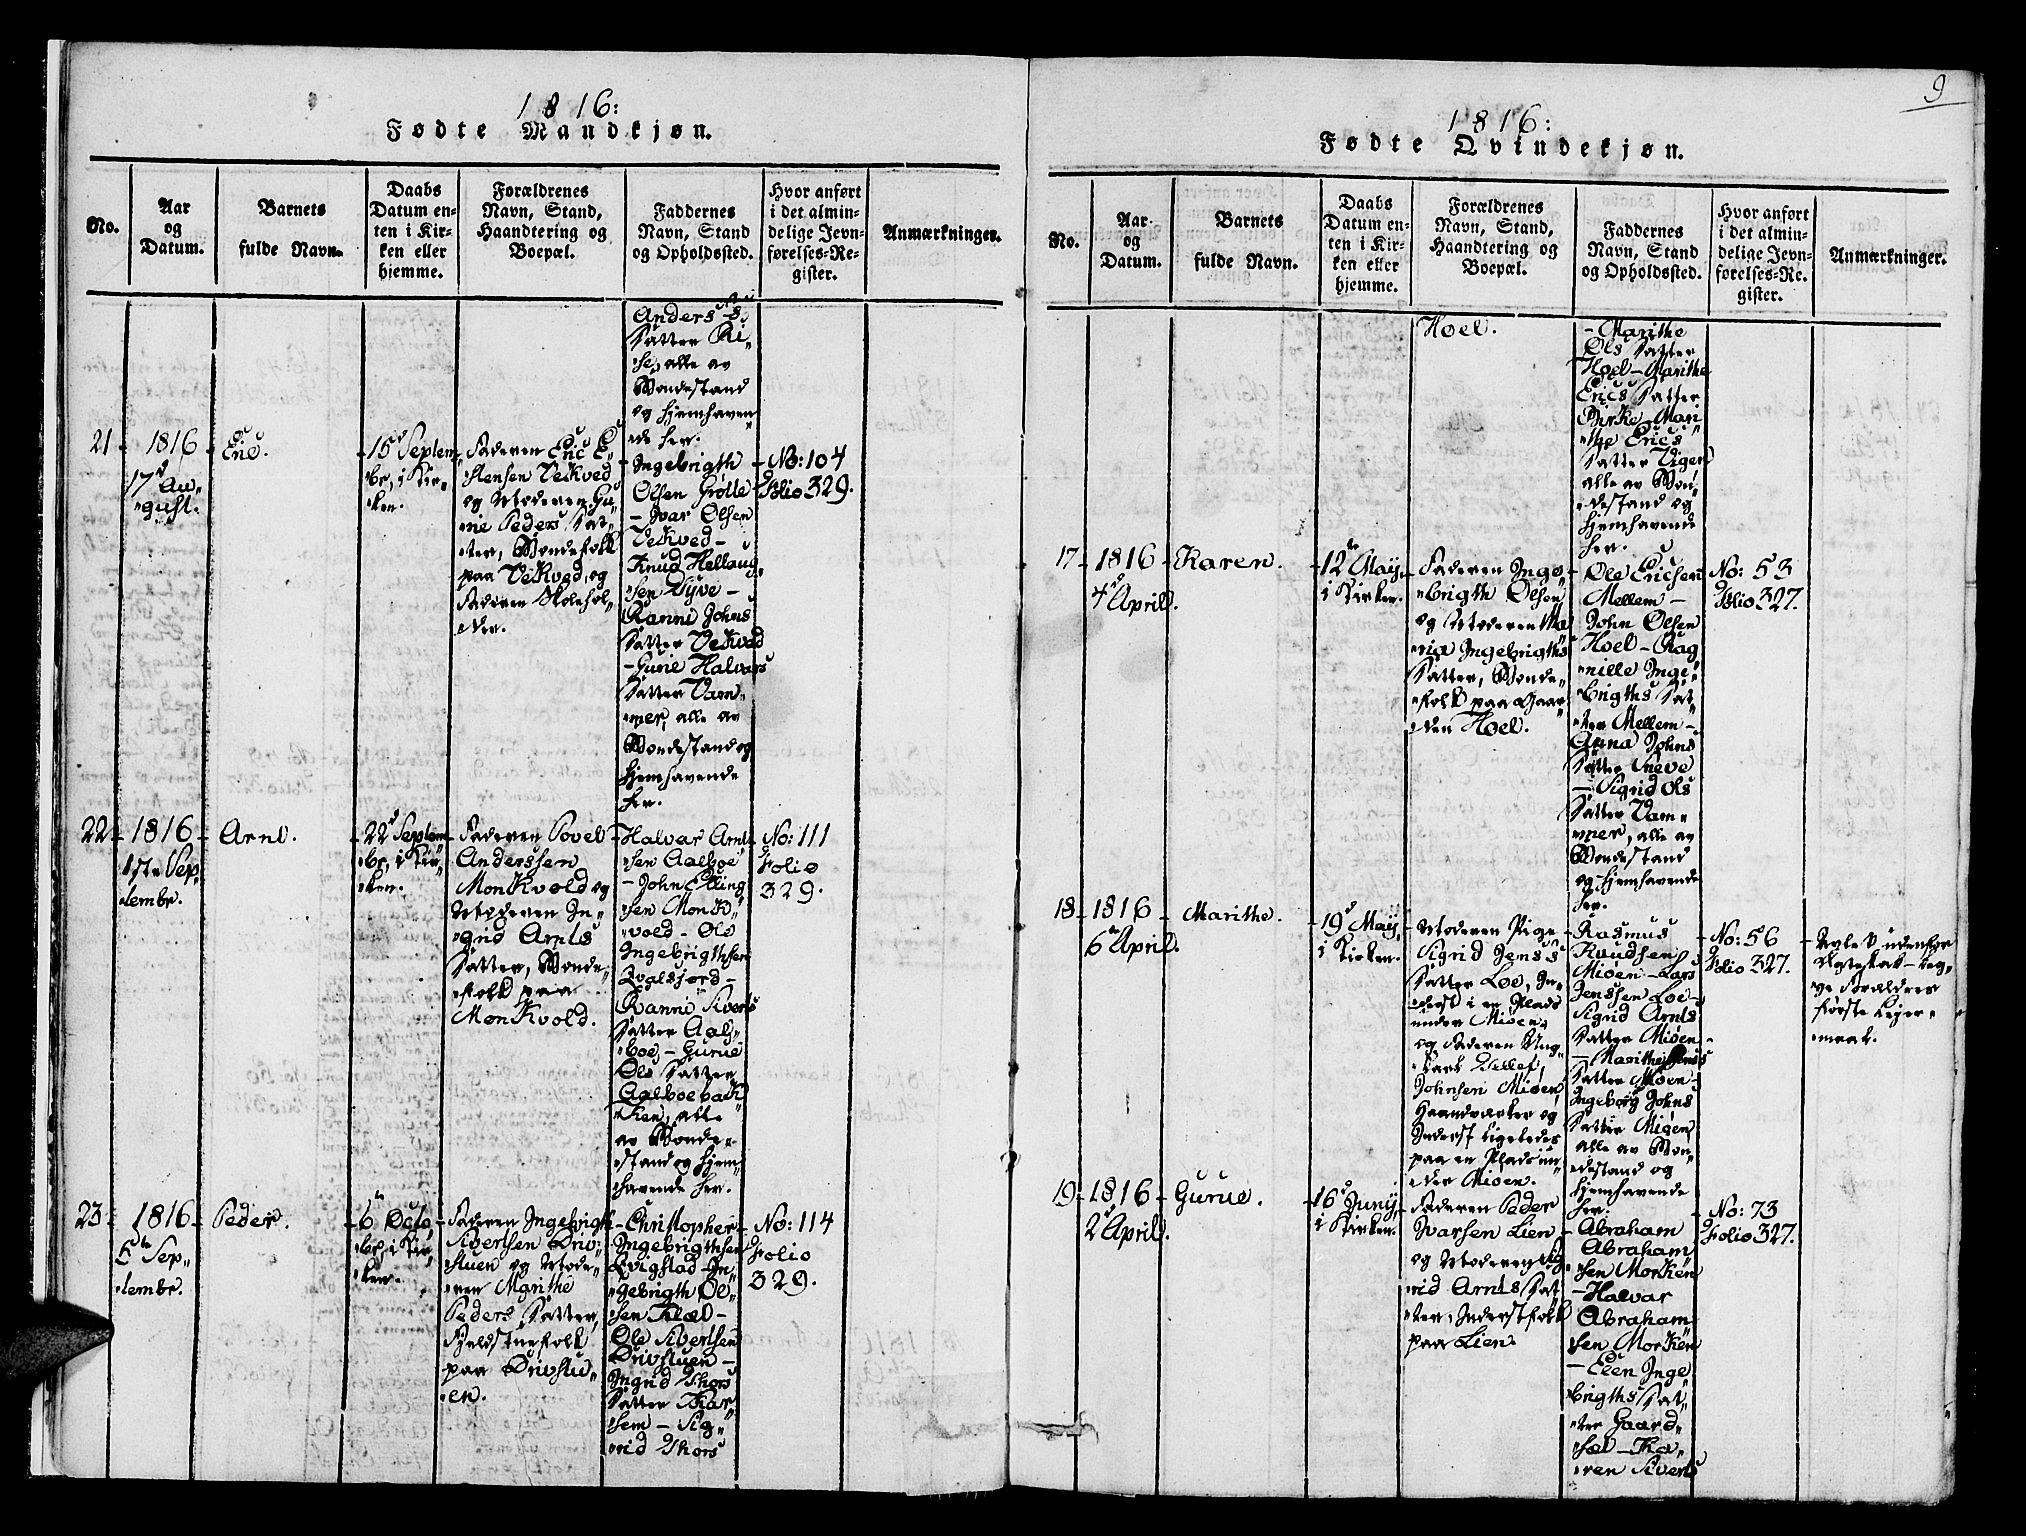 1816:
Fødte Mandkjøn.
No.
Aar
og
Datum.
Barnets
fulde Navn.
Daabs
Datum en-
ten i Kir-
ken eller
hjemme.
Forældrenes
Navn, Stand,
Haandtering og
Boepæl.
Faddernes
Navn, Stand
og Opholdssted.
Hvor anført
i det almin-
delige Jevn-
førelses-Re-
gister.
Anmærkninger.
Anders
Datter Ri„
„se, alle av
Bondestand
og hjemhaven„
„de her.
21 - 1816 - Eric.
17d Au„
„gust.
- 15d Septem„
„br, i Kir„
„ken.
- Faderen Eric E„
„stensen Vekved
og Moderen Gu„
„rie Peders Dat„
„ter, Bondefolk
paa Vekved, og
Faderen Skolehol„
„der.
- Ingebrigth
Olsen Grötte
- Ivar Olsen
Vekved -
Knud Hellaug„
„sen Dyve -
Ranni Johns
Datter Vekved
- Gurie Halvars
Datter Vam„
„mer, alle av
Bondestand og
hjemhavende
her.
- No: 104
Folio 329.
22 - 1816 - Arnt.
1ste Sep„
„tembr.
- 22d Septem„
„br, i Kir„
„ken.
- Faderen Povel
Anderssen
Monkvold og
Moderen In„
„grid Arnts
Datter, Bonde„
„folk paa
Monkvold.
- Halvar Arnt„
„sen Aalboe
- John Elling„
„sen Monk„
„vold - Ole
Ingebrigthsen
Qvalsjord -
Ranni Siverts
Datter Aal„
„boe - Gurue
Ols Datter
Aalboebach„
„ken, alle
av Bonde„
„stand og hjem„
„havende her.
- No: 111
Folio
329.
23 - 1816 - Peder.
5te Sep„
„tembr.
- 6te Octo„
„br, i Kir„
„ken.
- Faderen Ingebrigth
Sivertsen Driv„
„stuen og Mode„
„ren Marithe
Peders Datter,
Fjeldstuefolk
paa Drivstu„
„en.
- Christopher
Ingebrigthsen
Evigstad - In„
„gebrigth Ol„
„sen Klæt -
Ole Sivertsen
Drivstuen -
Ingrid Thors
Datter Kar„
„sem - Sig„
„rid Thors
- No: 114
Folio
329.
9
1816:
Fødte Qvindekjøn.
No.
Aar
og
Datum.
Barnets
fulde Navn.
Daabs
Datum en-
ten i Kir-
ken eller
hjemme.
Forældrenes
Navn, Stand,
Haandtering og
Boepæl.
Faddernes
Navn, Stand
og Opholdssted.
Hvor anført
i det almin-
delige Jevn-
førelses-Re-
gister.
Anmærkninger.
Hoel.
- Marithe
Ols Datter
Hoel - Marithe
Erics Datter
Birke - Mari„
„the Erics
Datter Viger
alle av Bon„
„destand og
hjemhavende
her.
17 - 1816 - Karen.
4d April.
- 12te Maij,
i Kirken.
- Faderen Inge„
„brigth Olsen
og Moderen Ma„
„ria Ingebrigths
Datter, Bonde„
„folk paa Gaar„
„den Hoel.
- Ole Ericsen
Mellem -
John Olsen
Hoel - Rag„
„nille Inge„
„brigths Dat„
„ter Mellem -
Anna Johns
Datter Sneve
- Sigrid Ols
Datter Vam„
„mer, alle av
Bondestand
og hjemhavende
her.
No: 53
Folio 327.
18 - 1816 - Marithe.
6te April.
- 19d Maij,
i Kirken.
- Moderen Pige
Sigrid Jenss
Datter Loe, In„
„derst i en Plads
under Miøen,
og Faderen Ung„
„karl Tellef
Johnsen Miøen,
Haandværker og
Inderst ligeledes
paa en Plads un„
„der Miøen.
- Rasmus
Knudsen
Miøen - Lars
Jenssen Loe -
Sigrid Arnts
Datter Miøen -
- Marithe Jenss
Datter Miøen -
Ingeborg Johns
Datter Miøen,
alle av Bon„
„destand og
hjemhavende
her.
- No: 56
Folio 327.
- Avlet udenfor
Ægteskab - beg„
„ge Forældres
første Leier„
„maal.
19 - 1816 - Gurue.
2d April.
- 16d Junij,
i Kirken.
- Faderen Peder
Ivarsen Lien
og Moderen Sig„
„rid Arnts Dat„
„ter, Inderstfolk
paa Lien.
- Abraham
Abraham„
„sen Morken
- Halvar
Abraham„
„sen Morken
- Elen Inge„
„brigths Dat„
„ter Gaard„
„sæt - Ka„
„ren Siverts
- No: 73
Folio 327.